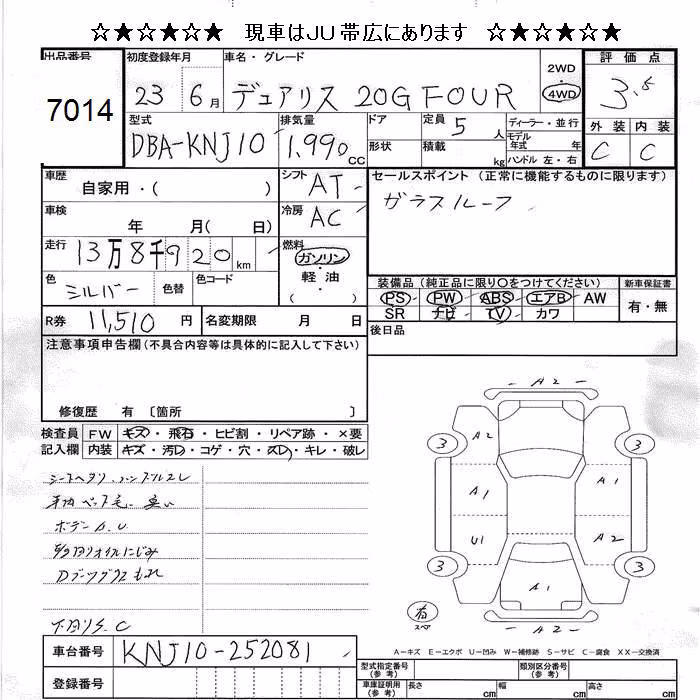 ☆★☆★☆★ 現車はJU帯広にあります ☆★☆★☆★
出品番号 初度登録年月 車名・グレード 評価点
7014 23 6月 デュアリス 20G FOUR 2WD 4WD 3.5
型式 排気量 ドア 定員 ディーラー・並行 外装 内装
DBA-KNJ10 1,990 CC 形状 5人 積載 kg モデル年式 年 ハンドル 左・右 C C
車歴 自家用・( ) シフト AT セールスポイント (正常に機能するものに限ります)
車検 年 月( 日) 冷房 AC ガラスルーフ
走行 13万8千920km 燃料 ガソリン・軽油・( )
色 シルバー 色替 色コード
装備品 (純正品に限り○をつけてください) 新車保証書
PS PW ABS エアB AW 有・無
SR ナビ TV カワ
R券 11,510円 名変期限 月 日 後日品
注意事項申告欄(不具合内容等は具体的に記入して下さい)
修復歴 有 〔箇所 〕
検査員 FW キズ・飛石・ヒビ割・リペア跡・×要
記入欄 内装 キズ・汚レ・コゲ・穴・スレ・キレ・破レ
シートヘタリ、ハンドルスレ
ボデーA.U
下回りS.C
A2
A2
3 3
A1 A1
U1 A2
3 3
A1
有 スペア
A2
A-キズ E-エクボ U-凹み W-補修跡 S-サビ C-腐食 XX-交換済
車台番号 KNJ10-252081
型式指定番号(参考) 類別区分番号(参考)
登録番号 車庫証明用(参考) 長さ cm 幅 cm 高さ cm